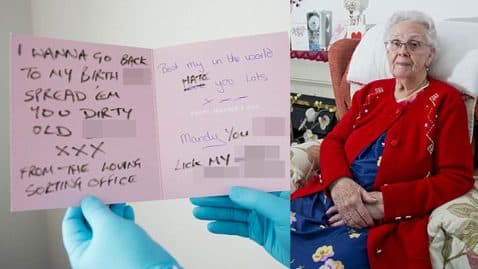 I WANNA GO BACK
TO MY BIRTH
SPREAD 'EM
YOU DIRTY
OLD
XXX
FROM - THE LOVING
SORTING OFFICE
Best my in the world
HATE you lots
Mandy YOU
LICK MY